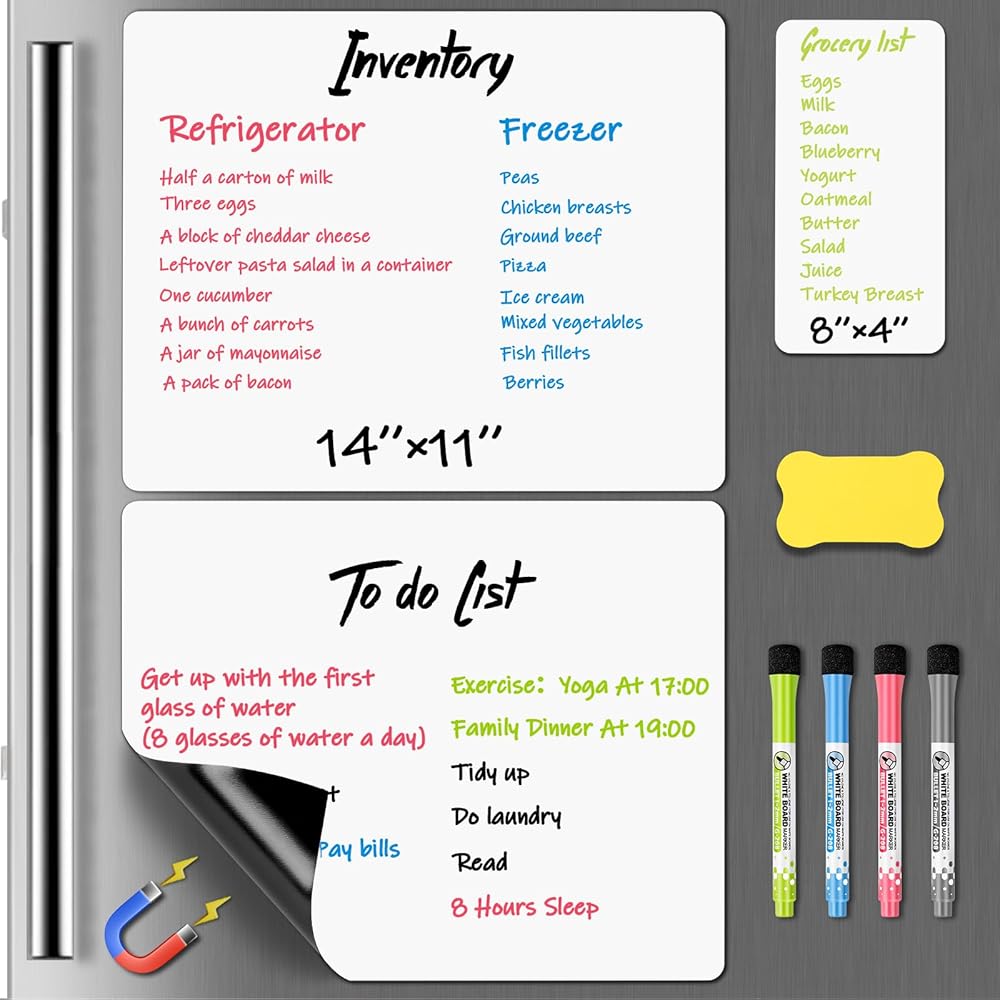 Inventory
Refrigerator
Half a carton of milk
Three eggs
A block of cheddar cheese
Leftover pasta salad in a container
One cucumber
A bunch of carrots
A jar of mayonnaise
A pack of bacon
Freezer
Peas
Chicken breasts
Ground beef
Pizza
Ice cream
Mixed vegetables
Fish fillets
Berries
14"×11"
Grocery list
Eggs
Milk
Bacon
Blueberry
Yogurt
Oatmeal
Butter
Salad
Juice
Turkey Breast
8"×4"
To do List
Get up with the first
glass of water
(8 glasses of water a day)
Pay bills
Exercise: Yoga At 17:00
Family Dinner At 19:00
Tidy up
Do laundry
Read
8 Hours Sleep
WHITE BOARD MARKER
WHITE BOARD MARKER
WHITE BOARD MARKER
WHITE BOARD MARKER